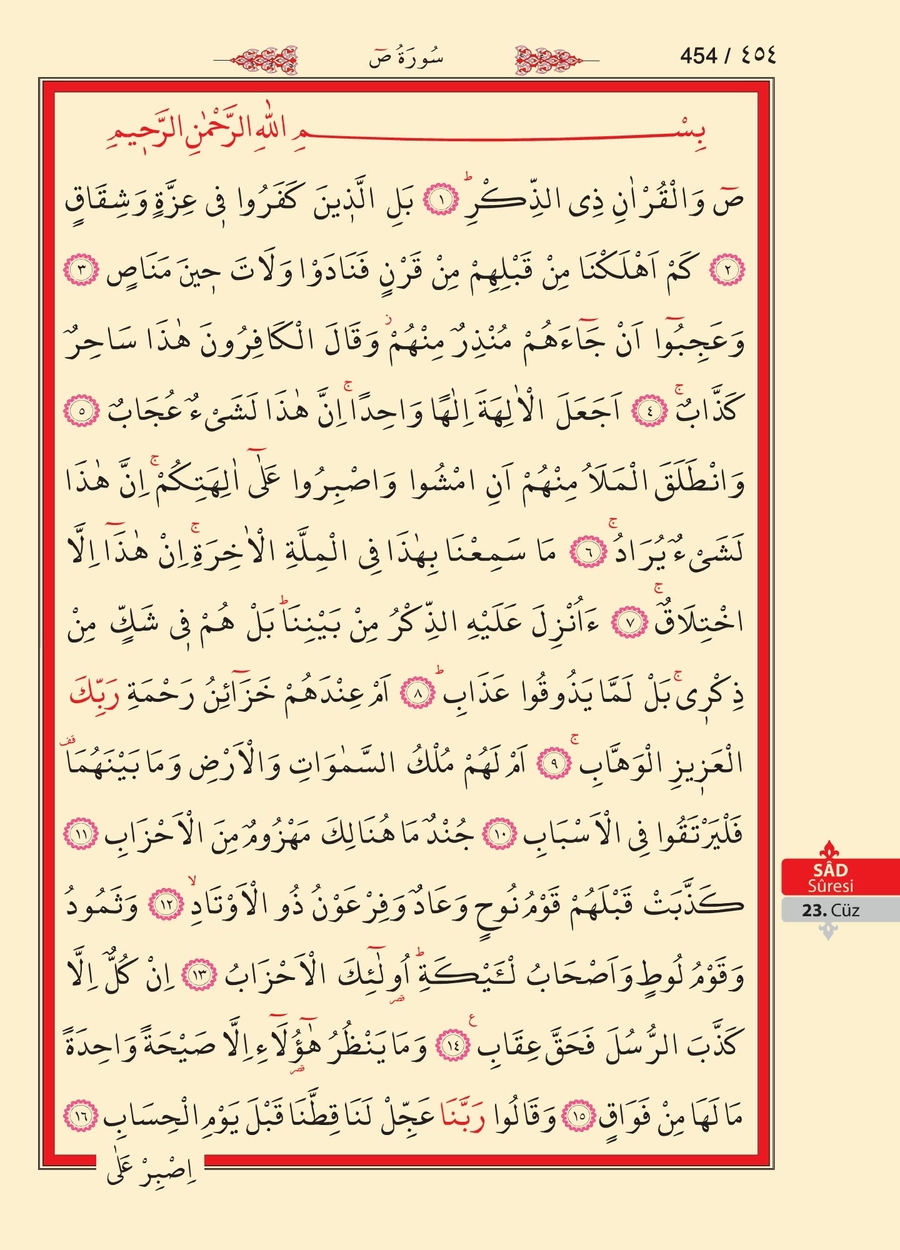 454 / ٤٥٤
سُورَةُ صٓ
بِسْــــــمِ اللّٰهِ الرَّحْمٰنِ الرَّحٖيمِ
صٓ وَالْقُرْاٰنِ ذِى الذِّكْرِؕ ﴿١﴾ بَلِ الَّذٖينَ كَفَرُوا فٖى عِزَّةٍ وَشِقَاقٍ
﴿٢﴾ كَمْ اَهْلَكْنَا مِنْ قَبْلِهِمْ مِنْ قَرْنٍ فَنَادَوْا وَلَاتَ حٖينَ مَنَاصٍ ﴿٣﴾
وَعَجِبُٓوا اَنْ جَٓاءَهُمْ مُنْذِرٌ مِنْهُمْؗ وَقَالَ الْكَافِرُونَ هٰذَا سَاحِرٌ
كَذَّابٌۚ ﴿٤﴾ اَجَعَلَ الْاٰلِهَةَ اِلٰهًا وَاحِدًاۚ اِنَّ هٰذَا لَشَىْءٌ عُجَابٌ ﴿٥﴾
وَانْطَلَقَ الْمَلَاُ مِنْهُمْ اَنِ امْشُوا وَاصْبِرُوا عَلٰٓى اٰلِهَتِكُمْۚ اِنَّ هٰذَا
لَشَىْءٌ يُرَادُۚ ﴿٦﴾ مَا سَمِعْنَا بِهٰذَا فِى الْمِلَّةِ الْاٰخِرَةِۚ اِنْ هٰذَٓا اِلَّا
اخْتِلَاقٌۚ ﴿٧﴾ ءَاُنْزِلَ عَلَيْهِ الذِّكْرُ مِنْ بَيْنِنَاؕ بَلْ هُمْ فٖى شَكٍّ مِنْ
ذِكْرٖىۚ بَلْ لَمَّا يَذُوقُوا عَذَابِؕ ﴿٨﴾ اَمْ عِنْدَهُمْ خَزَٓائِنُ رَحْمَةِ رَبِّكَ
الْعَزٖيزِ الْوَهَّابِۚ ﴿٩﴾ اَمْ لَهُمْ مُلْكُ السَّمٰوَاتِ وَالْاَرْضِ وَمَا بَيْنَهُمَا قف
فَلْيَرْتَقُوا فِى الْاَسْبَابِ ﴿١٠﴾ جُنْدٌ مَا هُنَالِكَ مَهْزُومٌ مِنَ الْاَحْزَابِ ﴿١١﴾
كَذَّبَتْ قَبْلَهُمْ قَوْمُ نُوحٍ وَعَادٌ وَفِرْعَوْنُ ذُو الْاَوْتَادِۙ ﴿١٢﴾ وَثَمُودُ
وَقَوْمُ لُوطٍ وَاَصْحَابُ لْـَٔيْكَةِؕ اُو۬لٰٓئِكَ الْاَحْزَابُ ﴿١٣﴾ اِنْ كُلٌّ اِلَّا
كَذَّبَ الرُّسُلَ فَحَقَّ عِقَابِ ع ﴿١٤﴾ وَمَا يَنْظُرُ هٰٓؤُ۬لَٓاءِ اِلَّا صَيْحَةً وَاحِدَةً
مَا لَهَا مِنْ فَوَاقٍ ﴿١٥﴾ وَقَالُوا رَبَّنَا عَجِّلْ لَنَا قِطَّنَا قَبْلَ يَوْمِ الْحِسَابِ ﴿١٦﴾
اِصْبِرْ عَلٰى
SÂD
Sûresi
23. Cüz